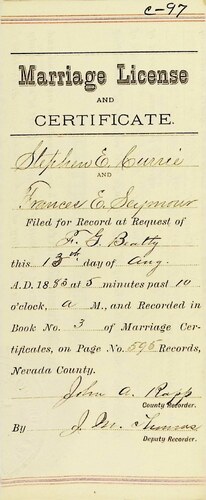 C-97
Marriage License
AND
CERTIFICATE.
Stephen E. Currie
AND
Frances E. Seymour
Filed for Record at Request of
F. G. Beatty
this 13th day of Aug.
A.D. 1885 at 5 minutes past 10
o'clock, a M., and Recorded in
Book No. 3 of Marriage Cer-
tificates, on Page No. 595 Records,
Nevada County.
John A. Rapp
County Recorder.
By J.
Deputy Recorder.